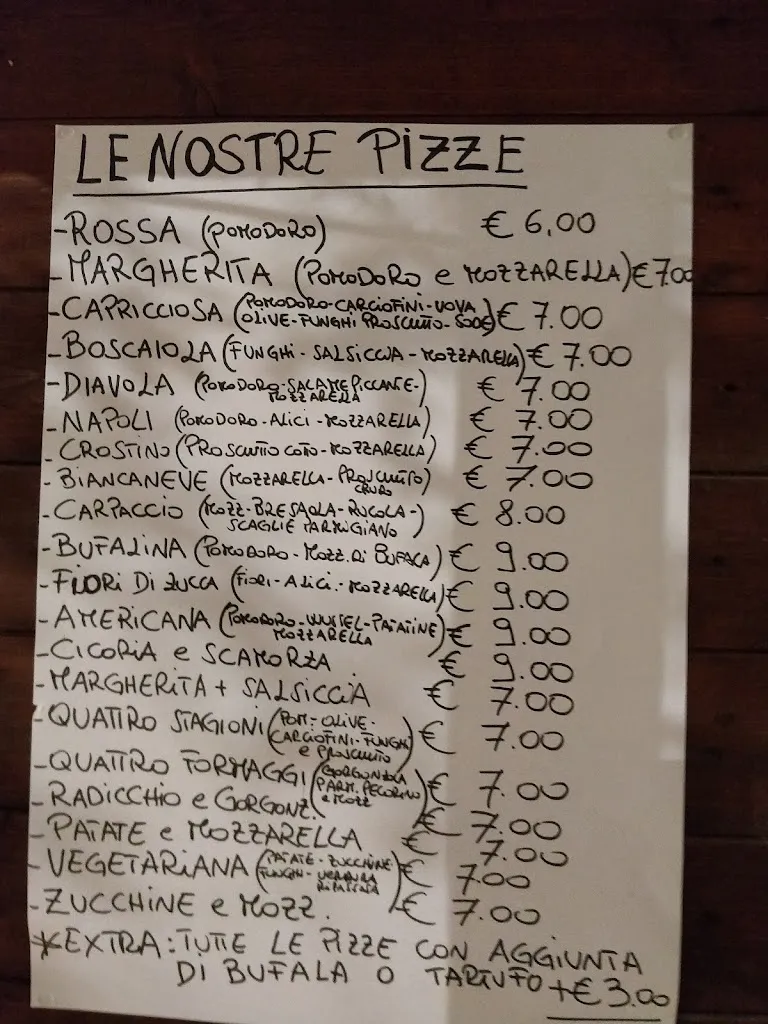 LE NOSTRE PIZZE
-ROSSA (POMODORO) € 6,00
-MARGHERITA (POMODORO e MOZZARELLA) € 7.00
-CAPRICCIOSA (POMODORO-CARCIOFINI-UOVA € 7.00
OLIVE-FUNGHI PROSCIUTTO-
-BOSCAIOLA (FUNGHI-SALSICCIA-MOZZARELLA) € 7.00
-DIAVOLA (POMODORO-SALAME PICCANTE- € 7.00
MOZZARELLA)
-NAPOLI (POMODORO-ALICI-MOZZARELLA) € 7.00
-CROSTINO (PROSCIUTTO COTTO-MOZZARELLA) € 7.00
-BIANCANEVE (MOZZARELLA-PROSCIUTTO € 7.00
CRUDO)
-CARPACCIO (MOZZ-BRESAOLA-RUCOLA- € 8.00
SCAGLIE PARMIGIANO)
-BUFALINA (POMODORO-MOZZ.DI BUFALA) € 9.00
-FIORI DI ZUCCA (FIORI-ALICI.-MOZZARELLA) € 9.00
-AMERICANA (POMODORO-WUSTEL-PATATINE € 9.00
MOZZARELLA)
-CICORIA e SCAMORZA € 9.00
-MARGHERITA + SALSICCIA € 7.00
-QUATTRO STAGIONI (POM-OLIVE- € 7.00
CARCIOFINI-FUNGHI
e PROSCIUTTO)
-QUATTRO FORMAGGI (GORGONZOLA € 7.00
PARM. PECORINO
e MOZZ)
-RADICCHIO e GORGONZ. € 7.00
-PATATE e MOZZARELLA € 7.00
-VEGETARIANA (PATATE-ZUCCHINE € 7.00
FUNGHI-VERDURA
RIPASSATA)
-ZUCCHINE e MOZZ. € 7.00
*EXTRA: TUTTE LE PIZZE CON AGGIUNTA
DI BUFALA O TARTUFO +€ 3.00